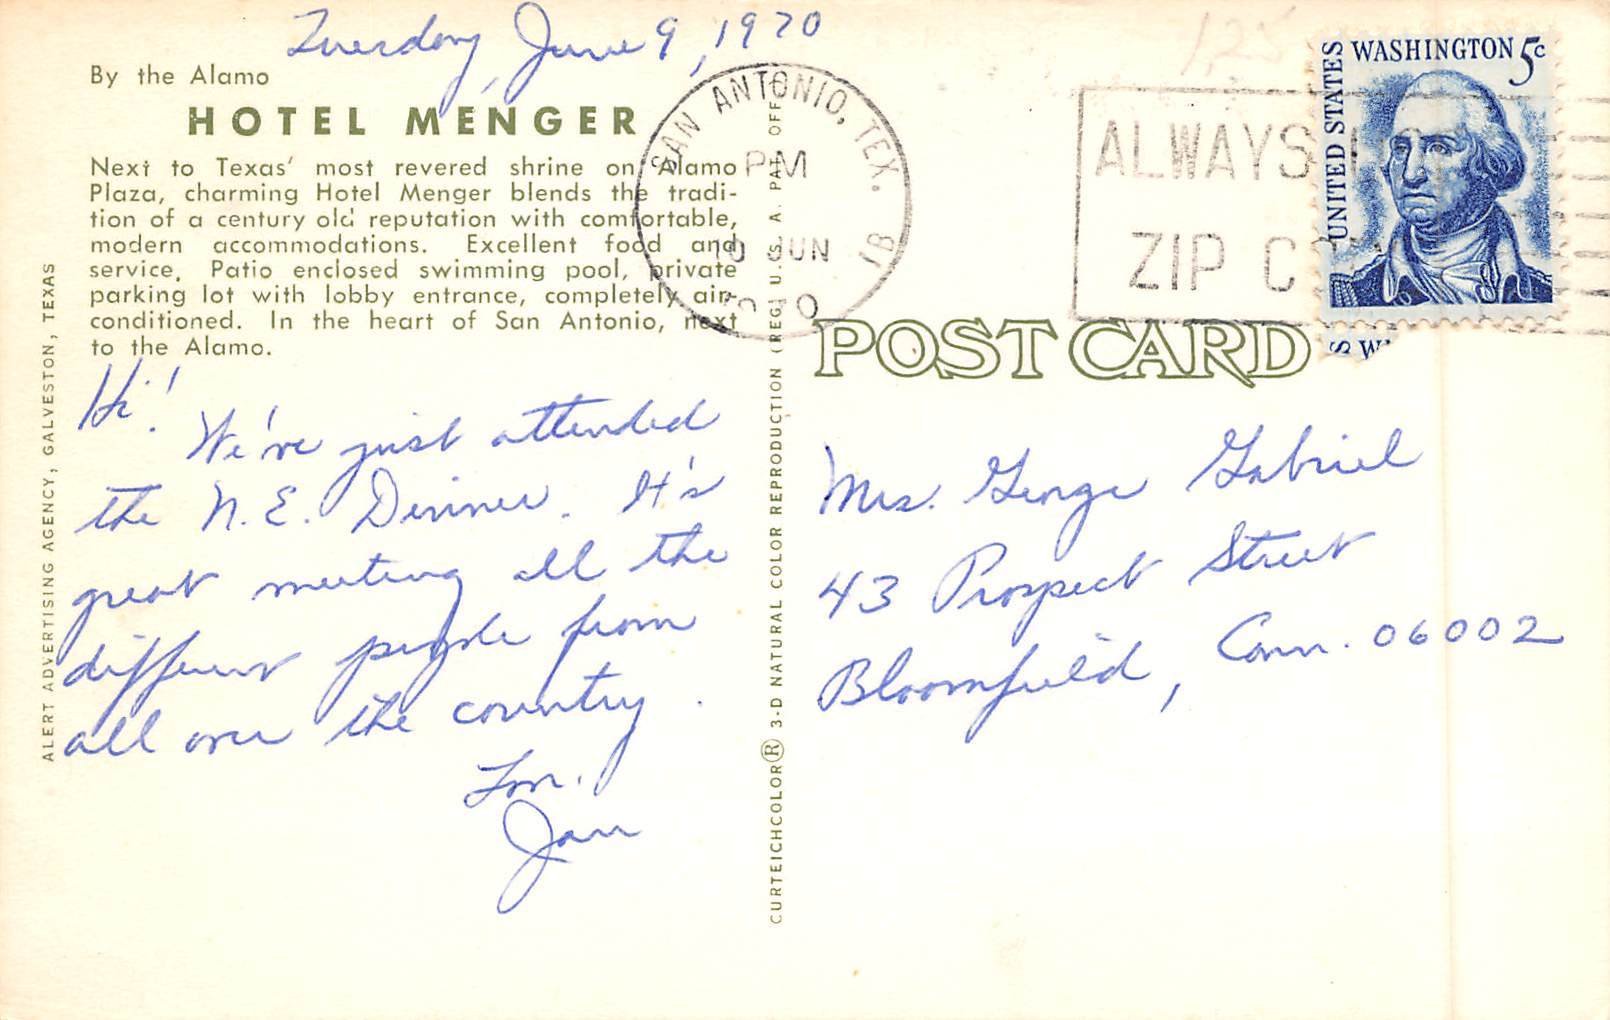 Tuesday, June 9, 1970
By the Alamo
HOTEL MENGER
Next to Texas' most revered shrine on Alamo
Plaza, charming Hotel Menger blends the tradi-
tion of a century old reputation with comfortable,
modern accommodations. Excellent food and
service. Patio enclosed swimming pool, private
parking lot with lobby entrance, completely air-
conditioned. In the heart of San Antonio, next
to the Alamo.
Hi!
We've just attended
the N.E. Dinner. It's
great meeting all the
different people from
all over the country.
Jan
ALERT ADVERTISING AGENCY, GALVESTON, TEXAS
CURTEICHCOLOR® 3-D NATURAL COLOR REPRODUCTION (REG. U.S.A. PAT. OFF.)
SAN ANTONIO, TEX.
PM
10 JUN
1970
1B
1,25
ALWAYS
ZIP C
UNITED STATES
WASHINGTON 5c
S W
POST CARD
Mrs. George Gabriel
43 Prospect Street
Bloomfield, Conn. 06002